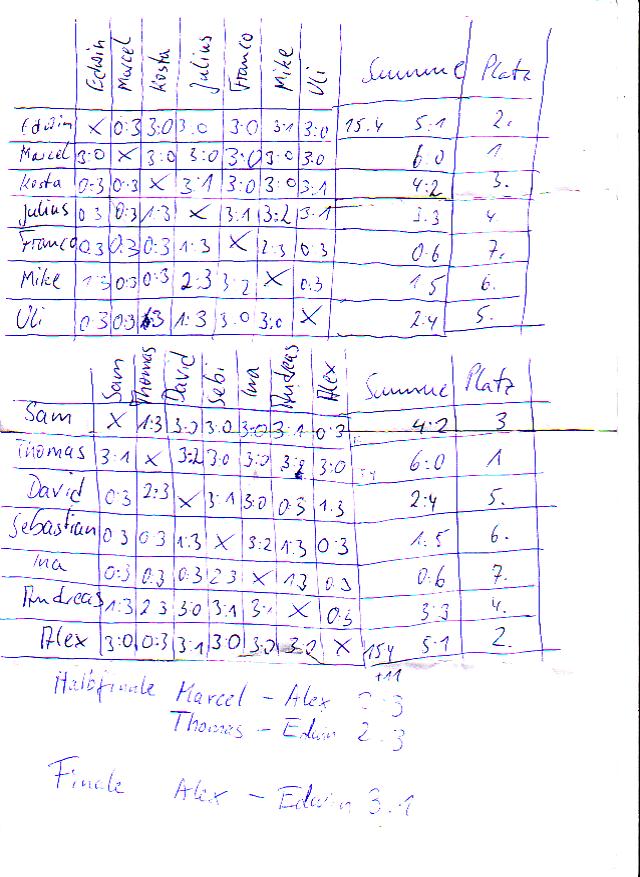 Edwin Marcel Kosta Julius Franco Mike Uli Summe Platz
Edwin X 0:3 3:0 3:0 3:0 3:1 3:0 15:4 5:1 2.
Marcel 3:0 X 3:0 3:0 3:0 3:0 3:0 6:0 1
Kosta 0:3 0:3 X 3:1 3:0 3:0 3:1 4:2 3.
Julius 0:3 0:3 1:3 X 3:1 3:2 3:1 3:3 4
Franco 0:3 0:3 0:3 1:3 X 2:3 0:3 0:6 7.
Mike 1:3 0:3 0:3 2:3 3:2 X 0:3 1:5 6.
Uli 0:3 0:3 1:3 1:3 3:0 3:0 X 2:4 5.
Sam Thomas David Sebi Ina Andreas Alex Summe Platz
Sam X 1:3 3:0 3:0 3:0 3:1 0:3 4:2 3
Thomas 3:1 X 3:2 3:0 3:0 3:2 3:0 6:0 1
David 0:3 2:3 X 3:1 3:0 0:3 1:3 2:4 5.
Sebastian 0:3 0:3 1:3 X 3:2 1:3 0:3 1:5 6.
Ina 0:3 0:3 0:3 2:3 X 1:3 0:3 0:6 7.
Andreas 1:3 2:3 3:0 3:1 3:1 X 0:3 3:3 4.
Alex 3:0 0:3 3:1 3:0 3:0 3:0 X 15:4 5:1 2.
+11
Halbfinale Marcel - Alex 0:3
Thomas - Edwin 2:3
Finale Alex - Edwin 3:1